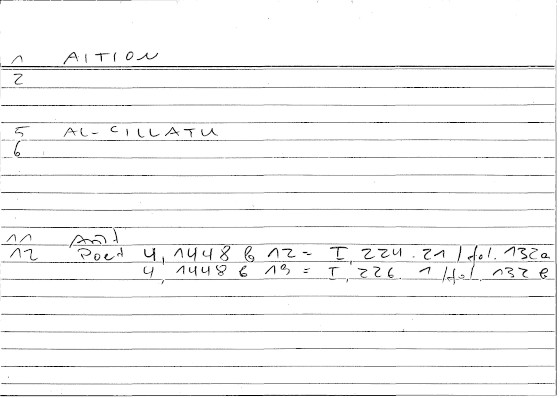 1 AITION
2
5 AL-ʿILLATU
6
11 Arist
12 Poet 4, 1448 b 12 = I, 224.21 / fol. 132a
4, 1448 b 13 = I, 226.1 / fol. 132 b